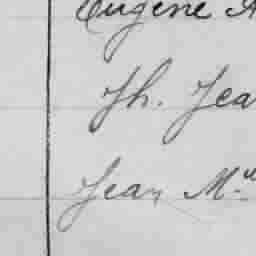 Eugène A
Jh. Jea
Jean M.